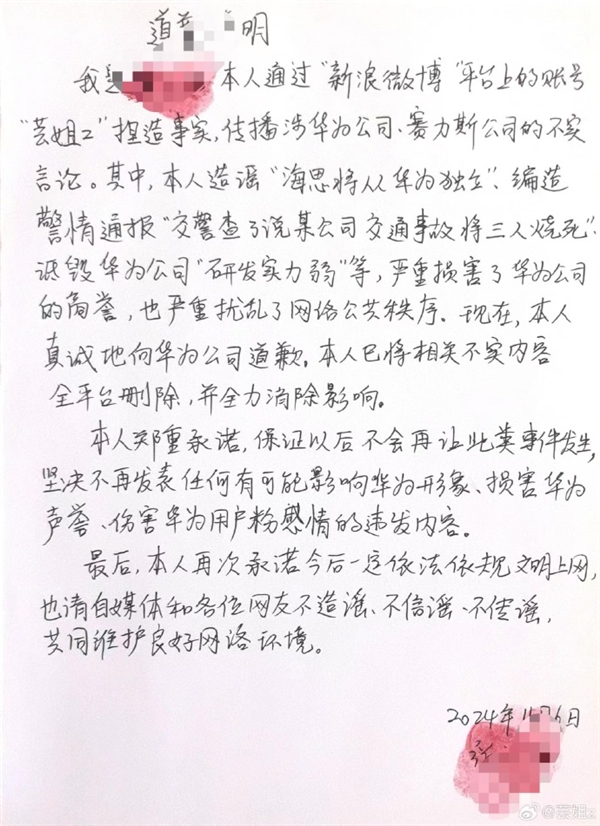 道 明
我是 本人通过“新浪微博”平台上的账号
“芸姐2”捏造事实,传播涉华为公司、赛力斯公司的不实
言论。其中,本人造谣“海思将从华为独立”、编造
警情通报“交警查了说某公司交通事故将三人烧死”、
诋毁华为公司“研发实力弱”等,严重损害了华为公司
的商誉,也严重扰乱了网络公共秩序。现在,本人
真诚地向华为公司道歉。本人已将相关不实内容
全平台删除,并全力消除影响。
本人郑重承诺,保证以后不会再让此类事件发生,
坚决不再发表任何有可能影响华为形象、损害华为
声誉、伤害华为用户粉感情的违发内容。
最后,本人再次承诺今后一定依法依规文明上网,
也请自媒体和各位网友不造谣、不信谣、不传谣,
共同维护良好网络环境。
2024年 日
@芸姐2